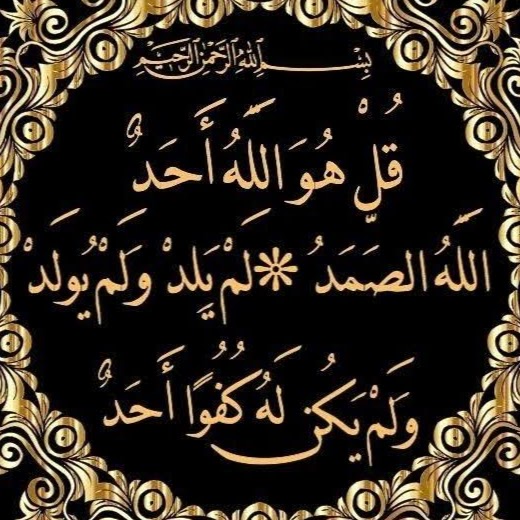 بِسْمِ اللهِ الرَّحْمٰنِ الرَّحِيْمِ
قُلْ هُوَ اللَّهُ أَحَدٌ
اللَّهُ الصَمَدُ * لَمْ يَلِدْ وَلَمْ يُولَدْ
وَلَمْ يَكُن لَهُ كُفُوًا أَحَدٌ